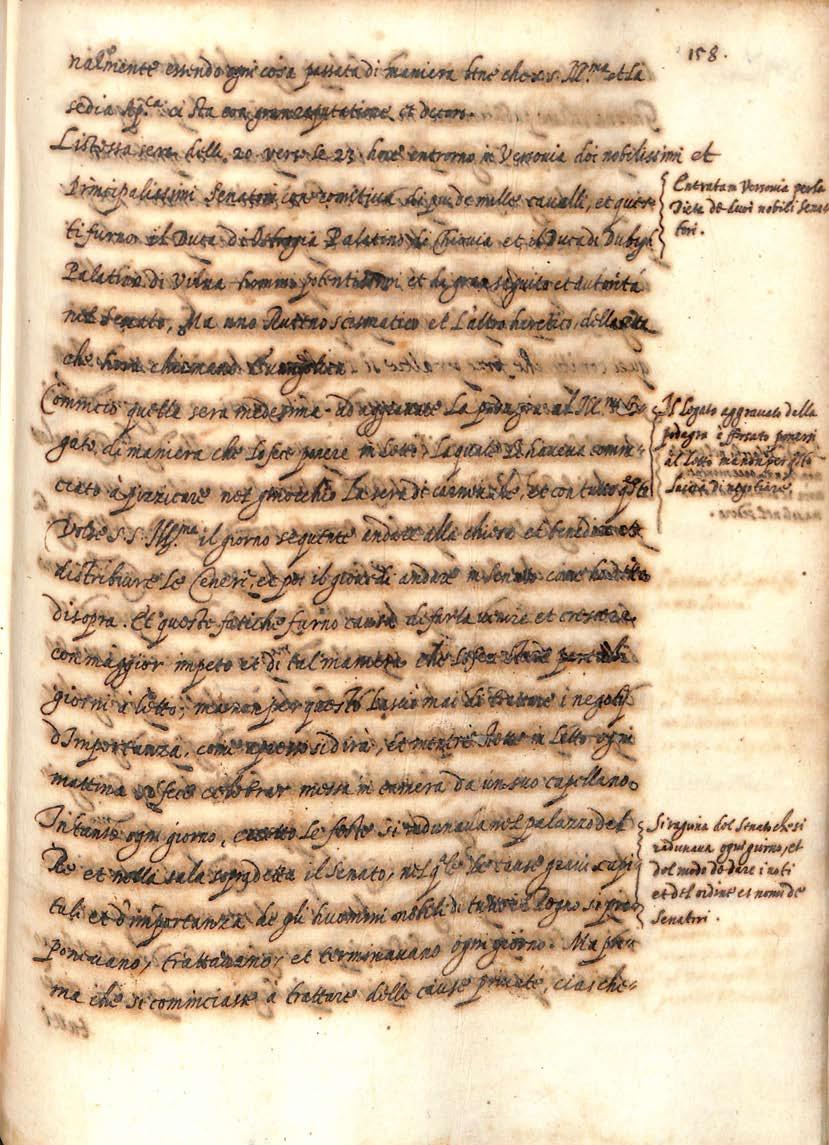 158.
nalmente essendo ogni cosa passata di maniera bene che S.S. Ill.ma et la
sedia Ap.ca ci sta con gran reputatione et decoro.
L'istessa sera delli 20 verso le 23 hore entrorno in Versovia doi nobilissimi et
Principalissimi Senatori con comitiva di piu de mille cavalli, et ques-
ti furno il Duca di Ostrogia Palatino di Chiovia et il Duca di
Palatino di Vilna homini potentissimi et di gran seguito et autorità
nel Senato, Ma uno Ruteno scismatico et l'altro heretico della setta
che hora chiamano Evangelica
Entrata in Versovia per la
Dieta de duoi nobili Senat
tori.
Cominciò quella sera medesima ad aggravare la podagra al Ill.mo Le-
gato di maniera che lo fece ponere in letto la quale haveva comin-
ciato à pizzicare nel ginocchio la sera di carnevale, et con tutto q.sto
Volse S.S. Ill.ma il giorno sequente andare alla chiesa et benedire et
distribuire le Ceneri, et poi il giovedi andare in Senato come ho detto
disopra. Et queste fatiche furno causa di farla venire et crescere
con maggior impeto et di tal maniera che lo fece stare
giorni à letto; ma non per questo lasciò mai di trattare i negotij
d'Importanza, come appresso si dirà, Et mentre stette in letto ogni
mattina si fece celebrar messa in camera da un suo capellano.
Il Legato aggravato della
podagra è sforsato ponersi
al letto ma non per q.sto
lascia di negotiare.
In tanto ogni giorno, eccetto le feste si radunava nel palazzo del
Re et nella sala sopradetta il Senato, nel q.le le cause gravi
et d'importanza de gli huomini nobili di tutto il Regno si pro-
ponevano, trattavano, et terminavano ogni giorno. Ma pri-
ma che si cominciasse à trattare delle cause private, ciasche-
Si ragiona del Senato che si
radunava ogni giorno, et
del modo de dare i voti
et del ordine et nomi de
Senatori.